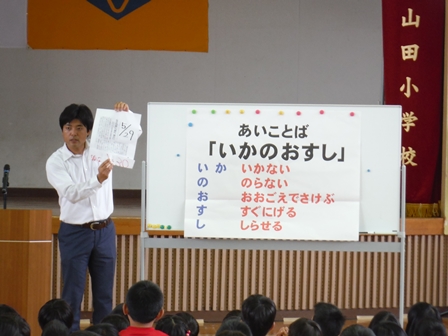 山田小学校
5/29
あいことば
「いかのおすし」
いか いかない
の のらない
お おおごえでさけぶ
す すぐにげる
し しらせる